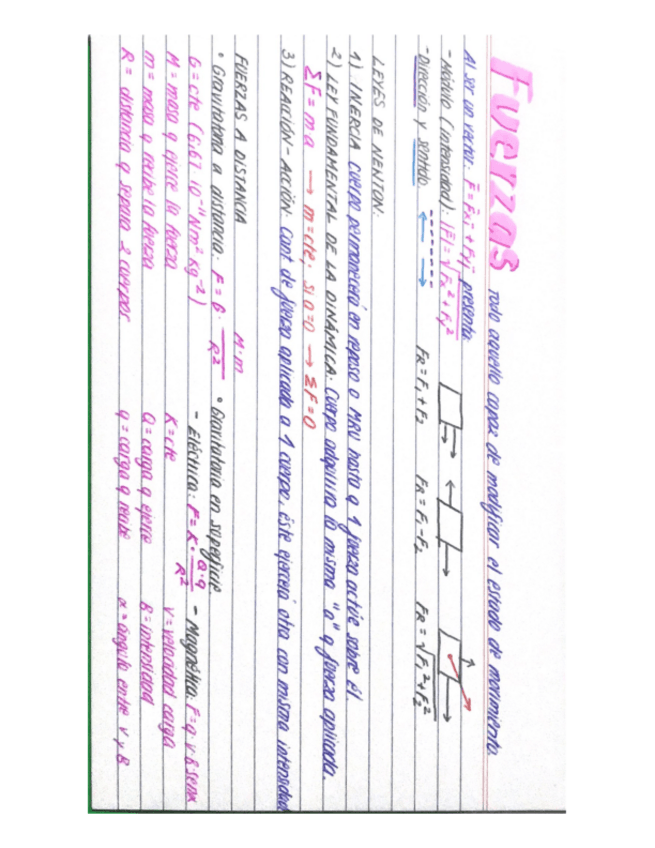 Fuerzas Todo aquello capaz de modificar el estado de movimiento.
Al ser un vector: F̄ = F̄xi + F̄yj presenta:
- Módulo (intensidad): |F̄| = √Fx² + Fy²
- Dirección y sentido
FR = F1 + F2 FR = F1 - F2 FR = √F1² + F2²
LEYES DE NEWTON:
1) INERCIA cuerpo permanecerá en reposo o MRU hasta q 1 fuerza actúe sobre él.
2) LEY FUNDAMENTAL DE LA DINÁMICA: Cuerpo adquirirá la misma "a" q fuerza aplicada.
ΣF = m·a → m = cte; si a = 0 → ΣF = 0
3) REACCIÓN - ACCIÓN: Cant de fuerza aplicada a 1 cuerpo, éste ejercerá otra con misma intensidad
FUERZAS A DISTANCIA
• Gravitatoria a distancia: F = G · M·m / R² • Gravitatoria en superficie
G = cte (6,67·10⁻¹¹ Nm² kg⁻²) - Eléctrica: F = K · Q·q / R² - Magnética: F = q·v·B senα
M = masa q ejerce la fuerza K = cte v = velocidad carga
m = masa q recibe la fuerza Q = carga q ejerce B = intensidad
R = distancia q separa 2 cuerpos q = carga q recibe α = ángulo entre v y B